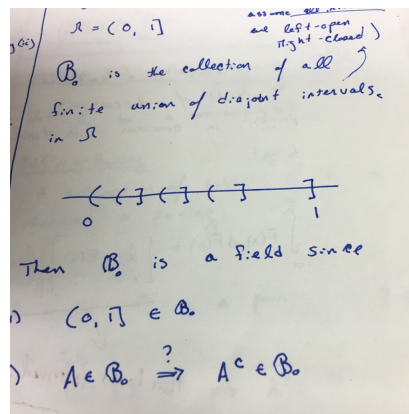 assume all in
Ω = (0, 1]
are left-open
right-closed)
g(ii)
B₀ is the collection of all
finite union of disjoint intervals.
in Ω
0 1
Then B₀ is a field since
i) (0, 1] ∈ B₀
) A ∈ B₀ ?⟹ Aᶜ ∈ B₀